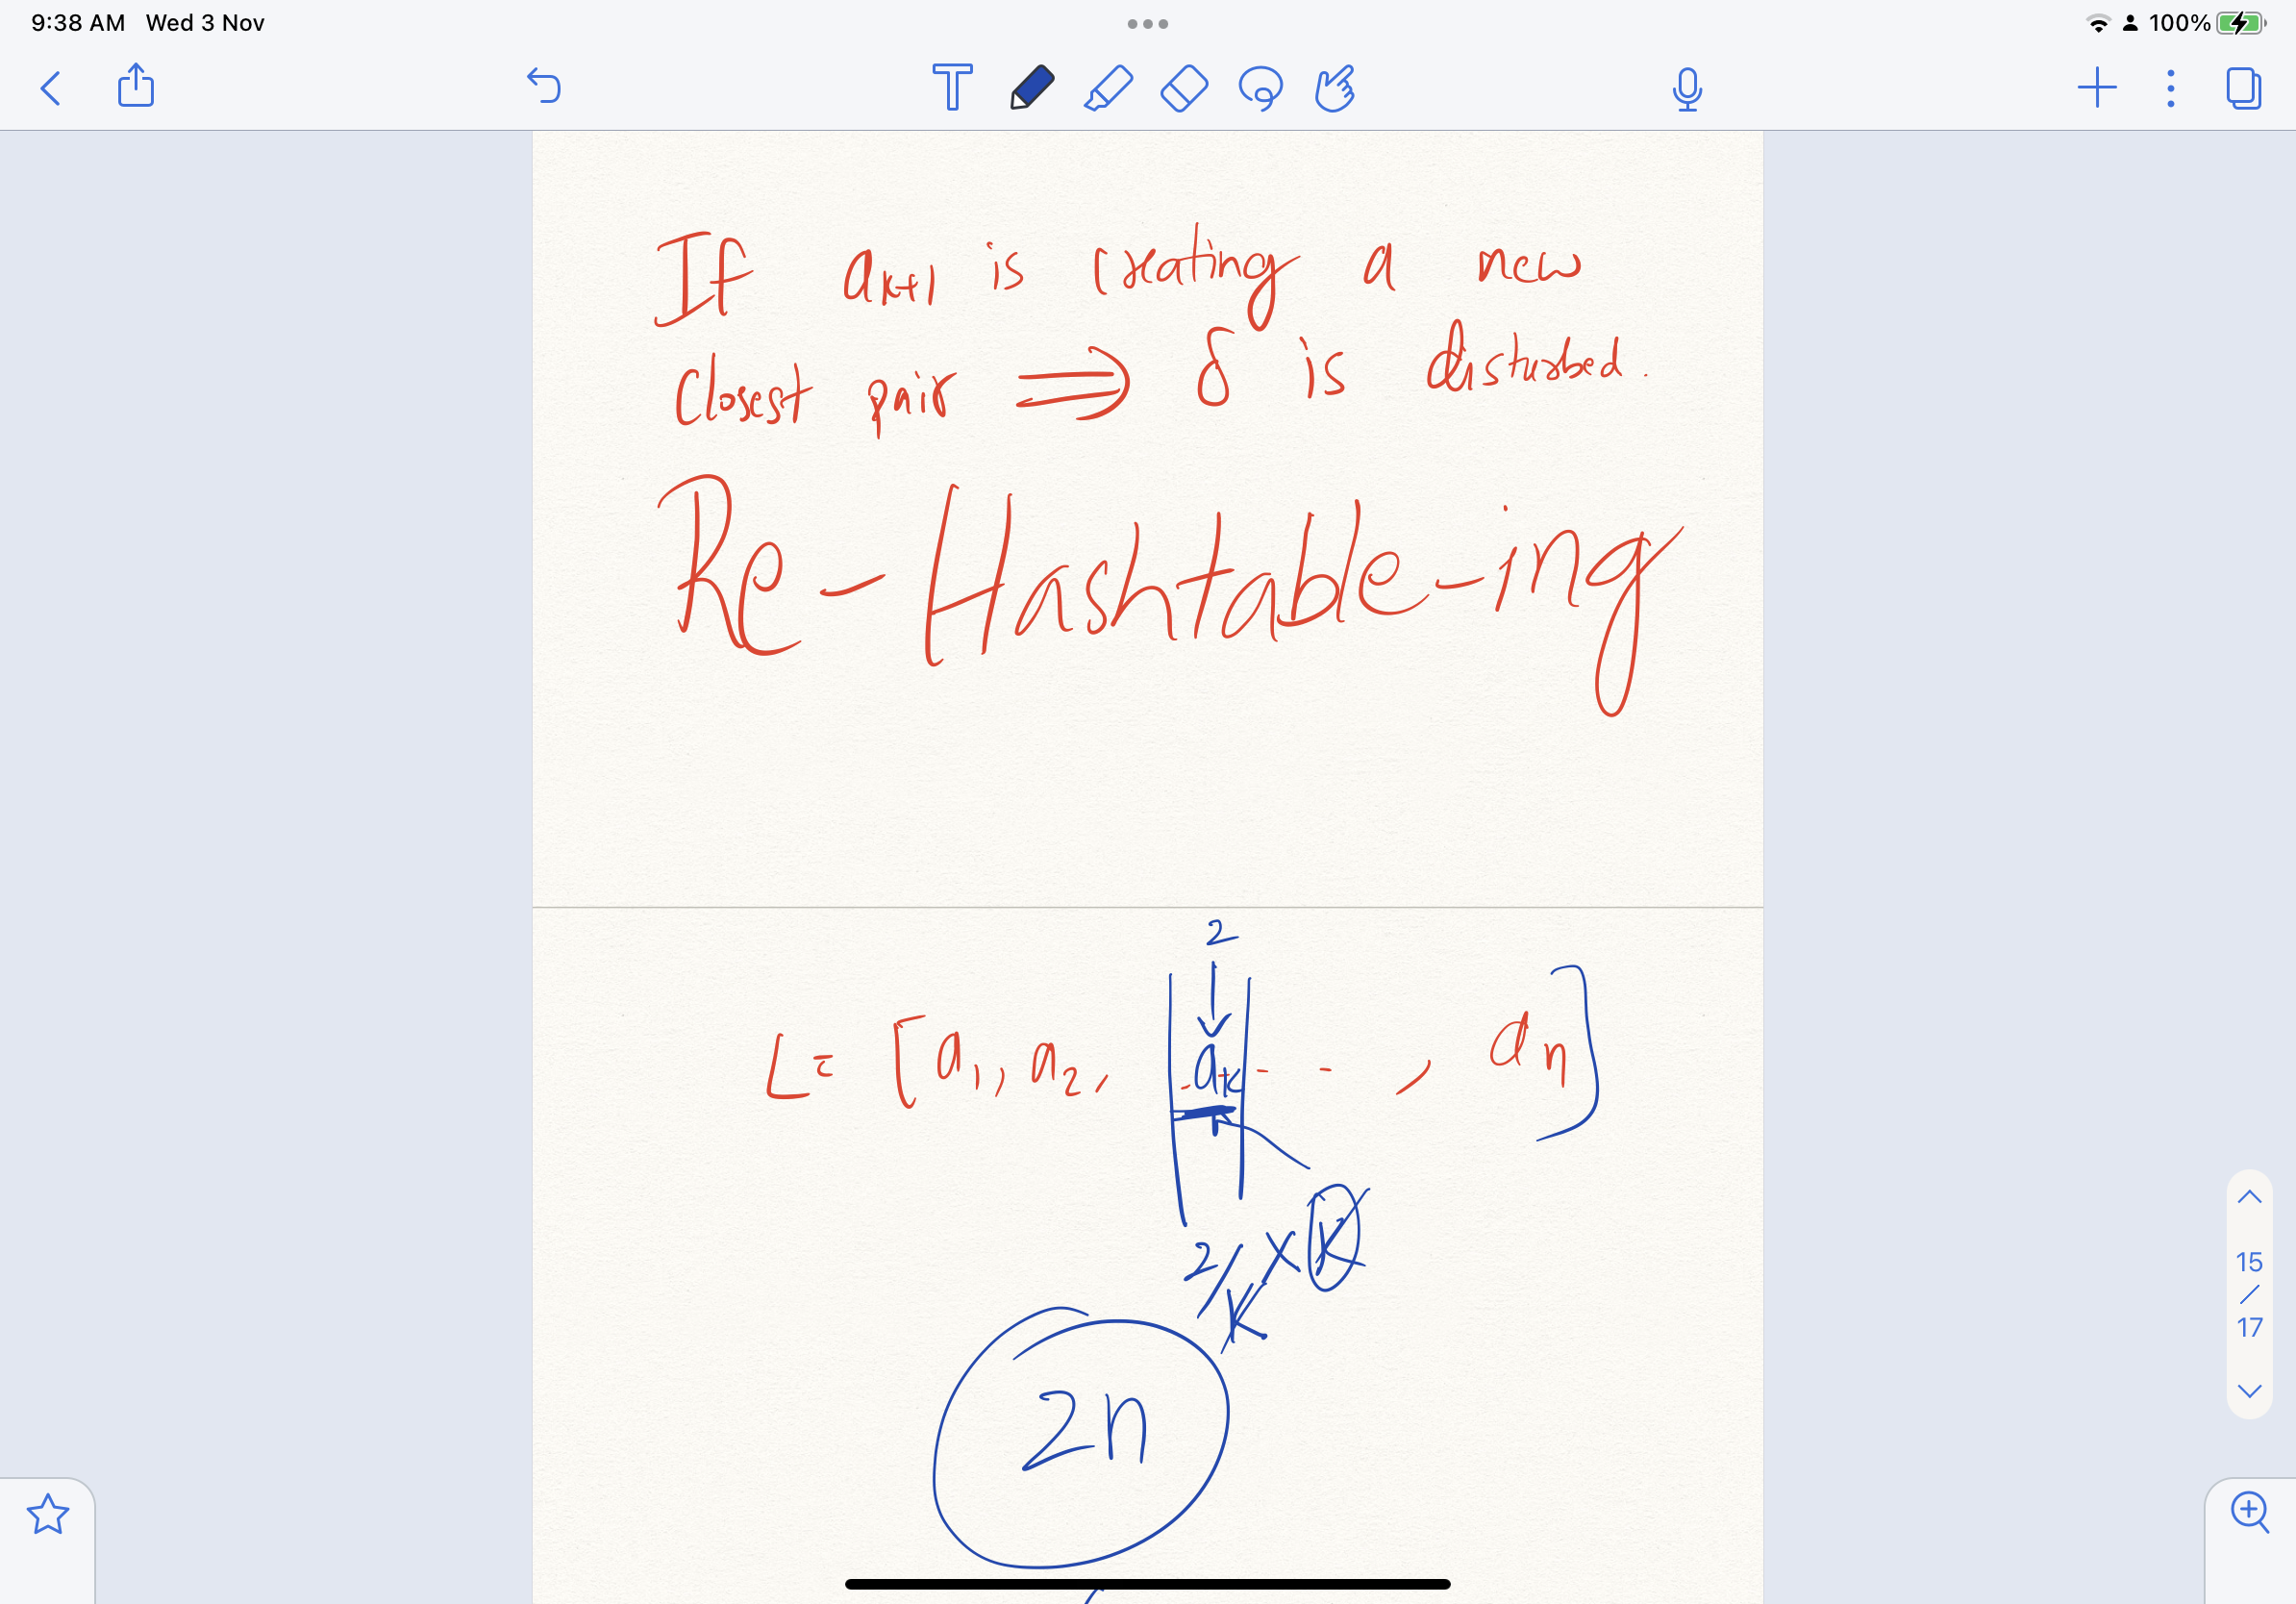 9:38 AM Wed 3 Nov 100%
If a_{k+1} is creating a new
closest pair ⟹ δ is disturbed.
Re-Hashtable-ing
2
L = [a_1, a_2, . a_k - - , a_n]
2/K × K
2n
15
/
17